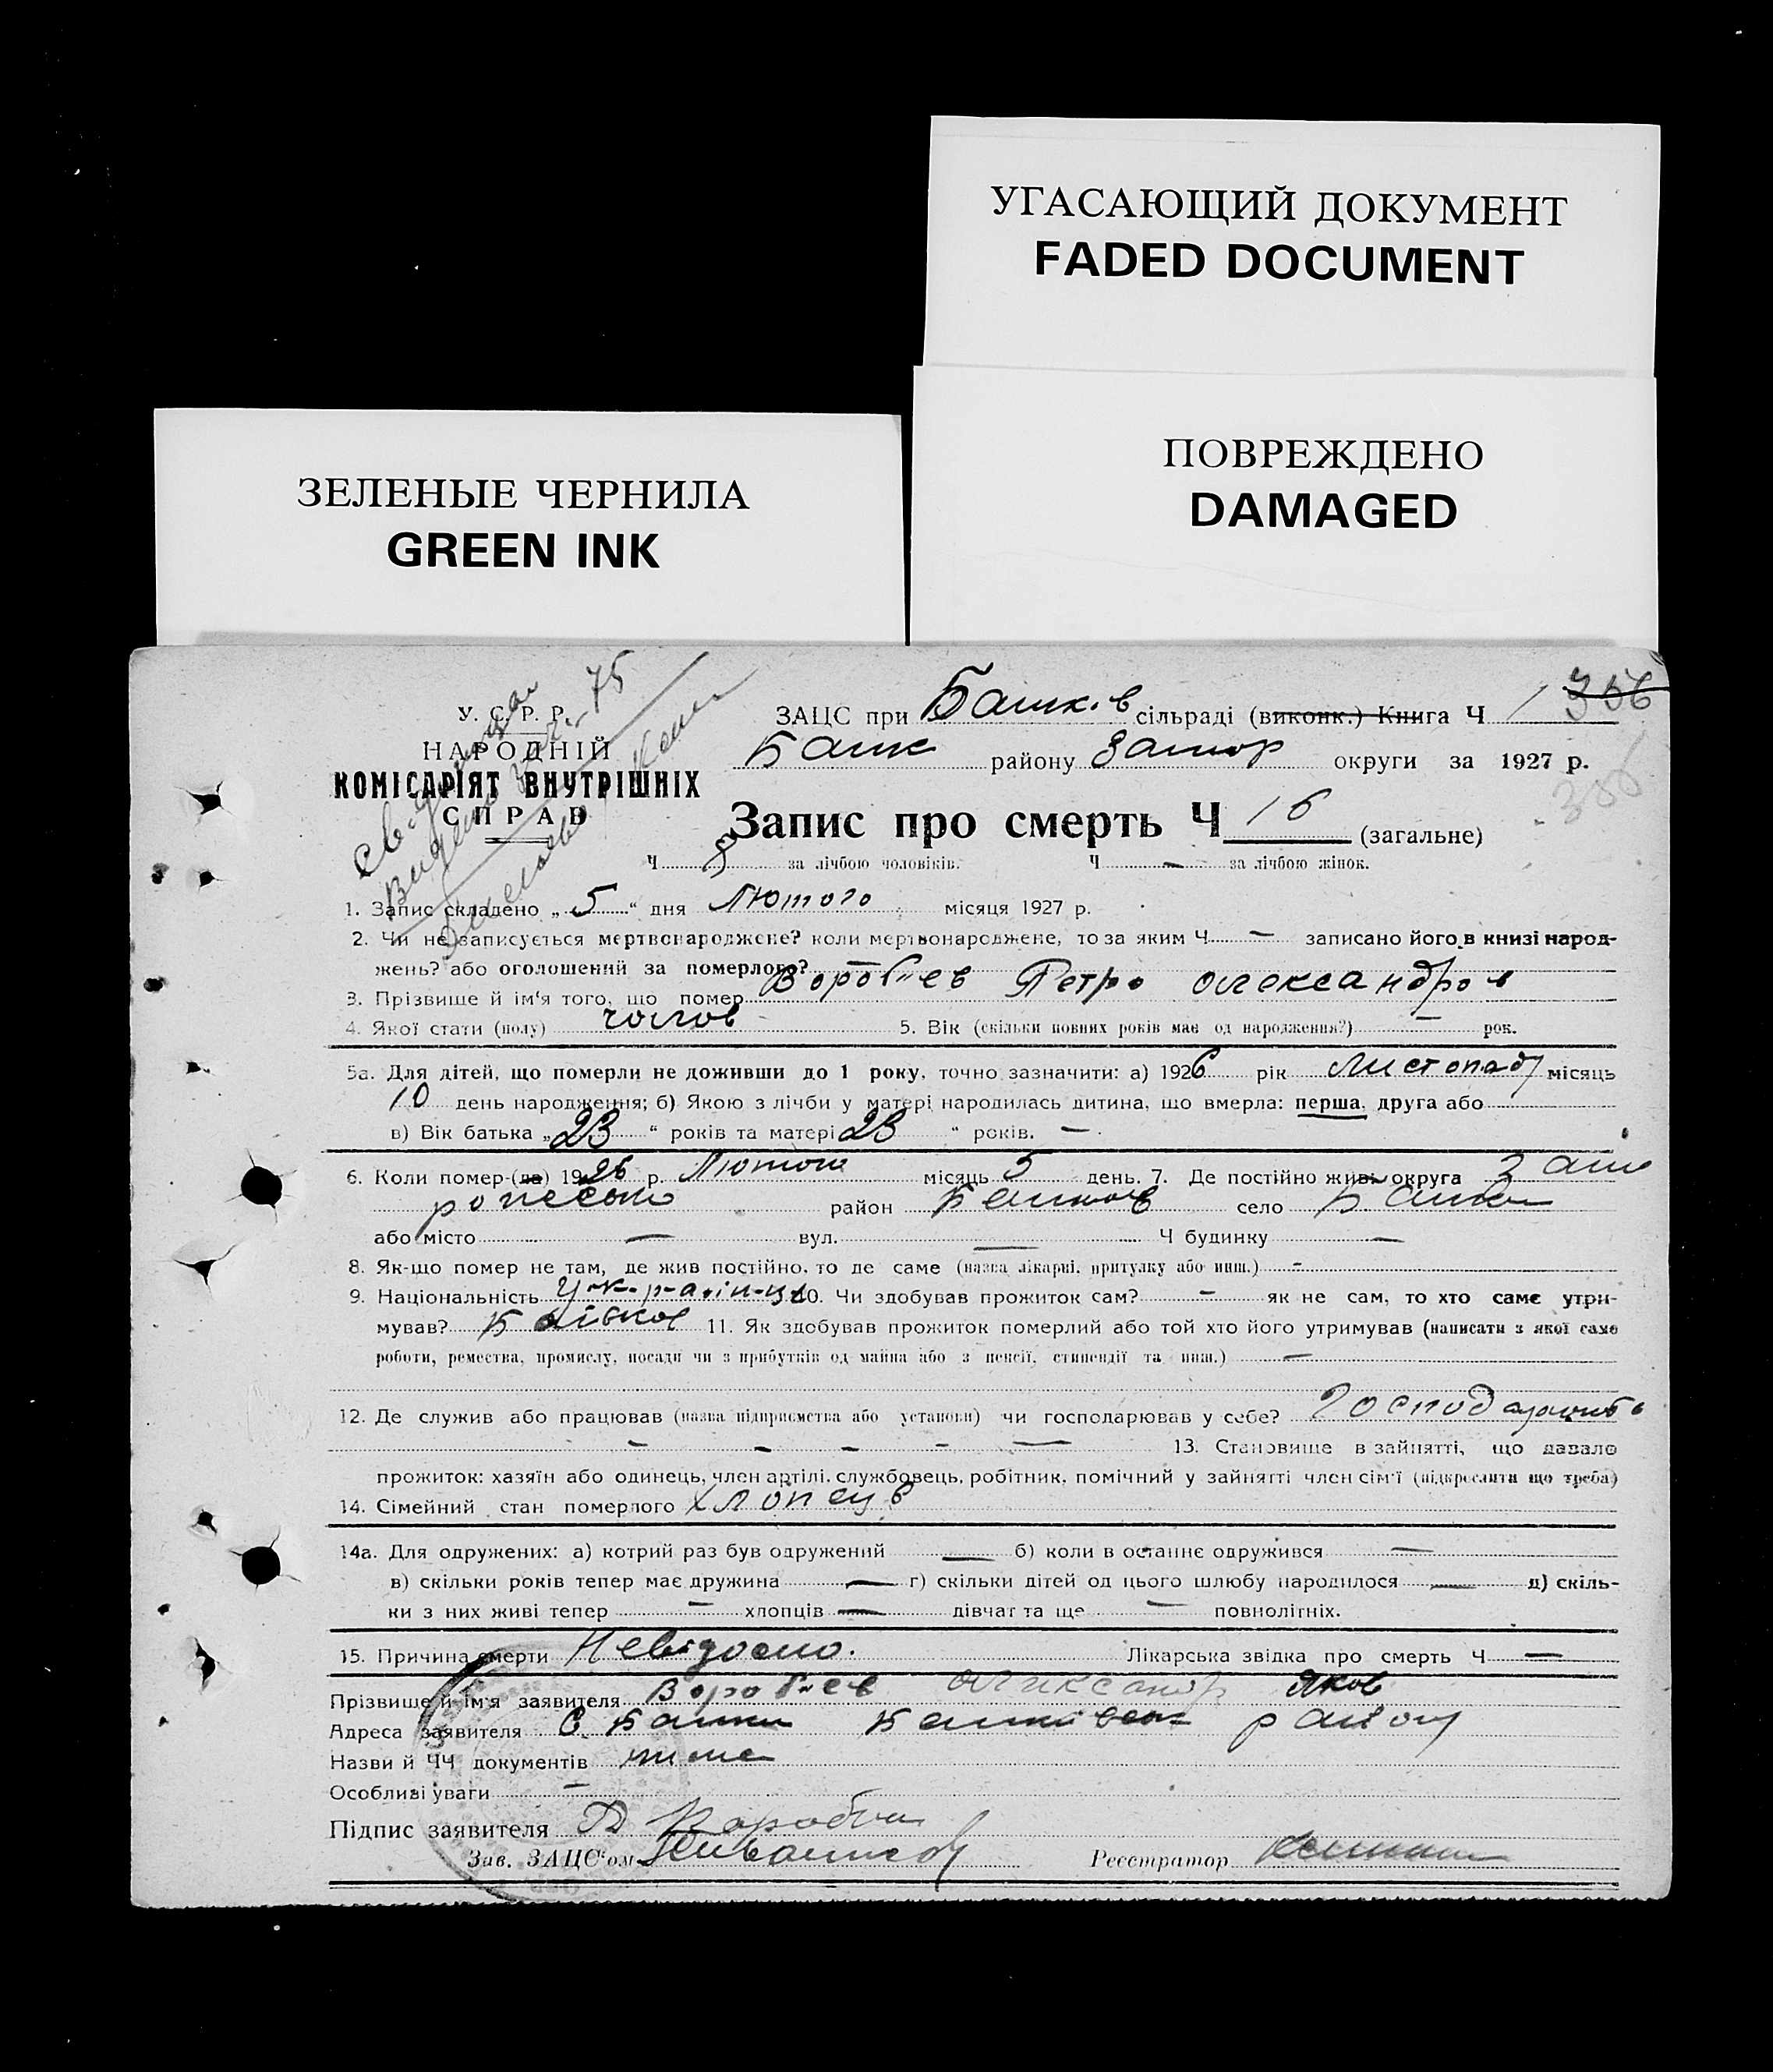 УГАСАЮЩИЙ ДОКУМЕНТ
FADED DOCUMENT
ЗЕЛЕНЫЕ ЧЕРНИЛА
GREEN INK
ПОВРЕЖДЕНО
DAMAGED
356
У. С. Р. Р.
НАРОДНІЙ
КОМІСАРІЯТ ВНУТРІШНІХ
СПРАВ
75
ЗАЦС при Башків сільраді (виконк.) Книга Ч 1
Баш району Запор округи за 1927 р.
Запис про смерть Ч 16 (загальне)
Ч за лічбою чоловіків. Ч — за лічбою жінок.
1. Запис складено „ 5 “ дня Лютого місяця 1927 р.
2. Чи не записується мертвонароджене? коли мертвонароджене, то за яким Ч — записано його в книзі народ-
жень? або оголошений за померлого? —
3. Прізвище й ім'я того, що помер Воробиев Петро Олександров
4. Якої стати (полу) чолов 5. Вік (скільки повних років має од народження?) — рок.
5а. Для дітей, що померли не доживши до 1 року, точно зазначити: а) 1926 рік Листопад місяць
10 день народження; б) Якою з лічби у матері народилась дитина, що вмерла: перша, друга або
в) Вік батька „ 23 “ років та матері 23 “ років. —
6. Коли помер-(ла) 1926 р. Лютого місяць 5 день. 7. Де постійно жив: округа Запо
район село
або місто — вул. — Ч будинку —
8. Як-що помер не там, де жив постійно, то де саме (назва лікарні, притулку або инш.) —
9. Національність Українц 10. Чи здобував прожиток сам? — як не сам, то хто саме утри-
мував? Батьков 11. Як здобував прожиток померлий або той хто його утримував (написати з якої саме
роботи, ремества, промислу, посади чи з прибутків од майна або з пенсії, стипендії та инш.) —
12. Де служив або працював (назва підприємства або установи) чи господарював у себе?
— — — — — 13. Становище в зайнятті, що давало
прожиток: хазяїн або одинець, член артілі, службовець, робітник, помічний у зайнятті член сім'ї (підкреслити що треба)
14. Сімейний стан померлого хлопець
14а. Для одружених: а) котрий раз був одружений — б) коли в останнє одружився —
в) скільки років тепер має дружина — г) скільки дітей од цього шлюбу народилося — д) скіль-
ки з них живі тепер — хлопців — дівчат та ще — повнолітніх.
15. Причина смерти Невідомо. Лікарська звідка про смерть Ч —
Прізвище й ім'я заявителя Воробиев Олександр Яков
Адреса заявителя С Башки район
Назви й ЧЧ документів нема
Особливі уваги —
Підпис заявителя
Зав. ЗАЦС'ом Реєстратор